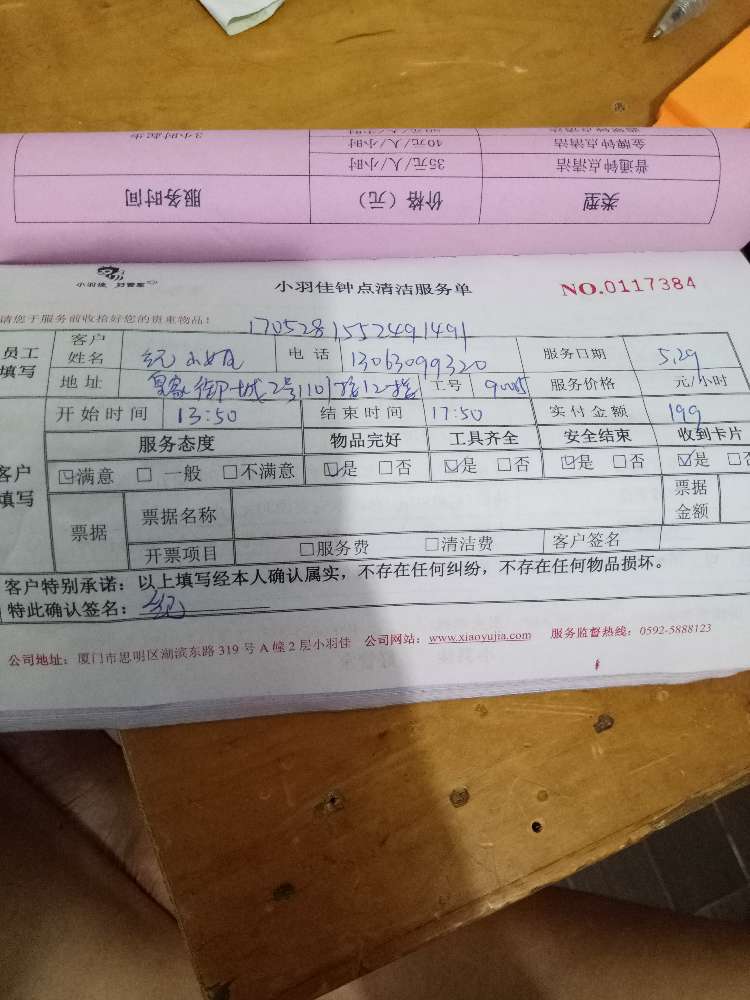 3小时起步
金牌钟点清洁 40元/人/小时
普通钟点清洁 35元/人/小时
类型 价格（元） 服务时间
小羽佳 好管家
小羽佳钟点清洁服务单
NO.0117384
请您于服务前收拾好您的贵重物品！
1705281552491491
员工填写 客户姓名 纪小姐 电话 13063099320 服务日期 5.29
地址 2号1101 工号 9005 服务价格 元/小时
开始时间 13:50 结束时间 17:50 实付金额 199
客户填写 服务态度 物品完好 工具齐全 安全结束 收到卡片
☑满意 □一般 □不满意 ☑是 □否 ☑是 □否 ☑是 □否 ☑是 □否
票据 票据名称 票据金额
开票项目 □服务费 □清洁费 客户签名
客户特别承诺：以上填写经本人确认属实，不存在任何纠纷，不存在任何物品损坏。
特此确认签名：纪
公司地址：厦门市思明区湖滨东路319号A幢2层小羽佳 公司网站：www.xiaoyujia.com 服务监督热线：0592-5888123